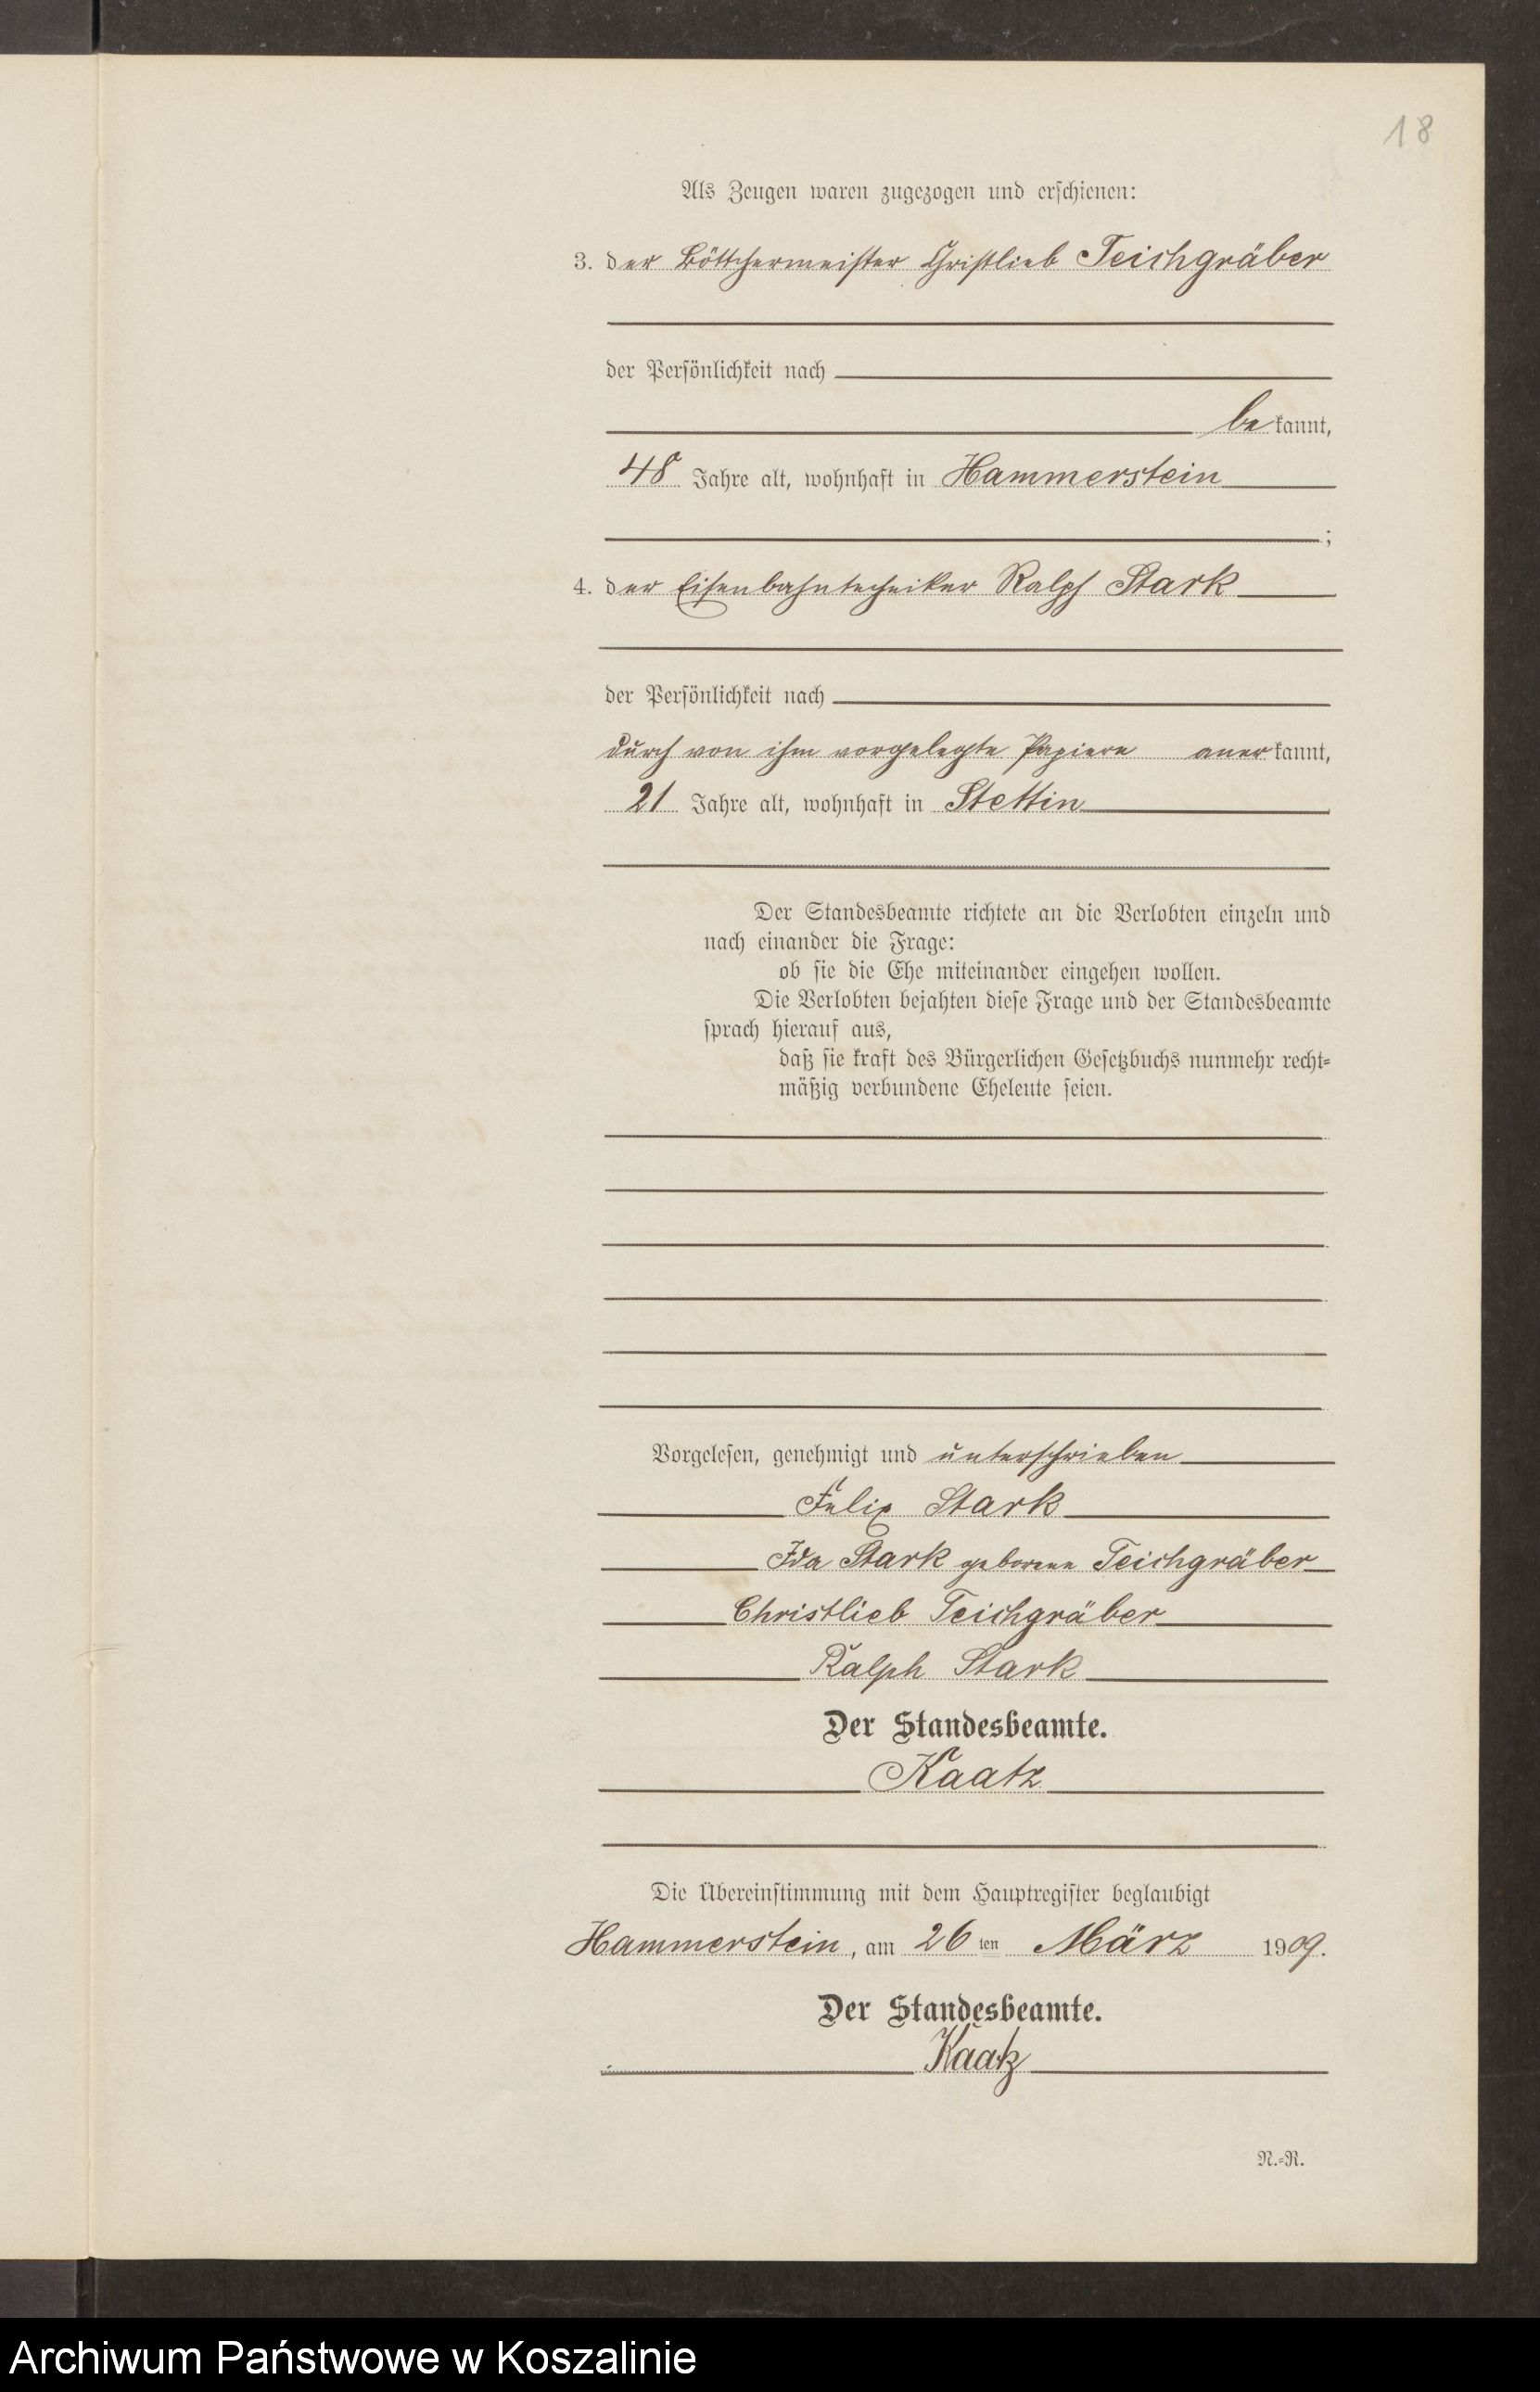 18
Als Zeugen waren zugezogen und erschienen:
3. der Böttchermeister Christlieb Teichgräber
der Persönlichkeit nach
be kannt,
48 Jahre alt, wohnhaft in Hammerstein
;
4. der Eisenbahntechniker Ralph Stark
der Persönlichkeit nach
durch von ihm vorgelegte Papiere aner kannt,
21 Jahre alt, wohnhaft in Stettin
Der Standesbeamte richtete an die Verlobten einzeln und
nach einander die Frage:
ob sie die Ehe miteinander eingehen wollen.
Die Verlobten bejahten diese Frage und der Standesbeamte
sprach hierauf aus,
daß sie kraft des Bürgerlichen Gesetzbuchs nunmehr recht-
mäßig verbundene Eheleute seien.
Vorgelesen, genehmigt und unterschrieben
Felix Stark
Ida Stark geborene Teichgräber
Christlieb Teichgräber
Ralph Stark
Der Standesbeamte.
Kaatz
Die Übereinstimmung mit dem Hauptregister beglaubigt
Hammerstein, am 26 ten März 1909.
Der Standesbeamte.
Kaatz
N.-R.
Archiwum Państwowe w Koszalinie